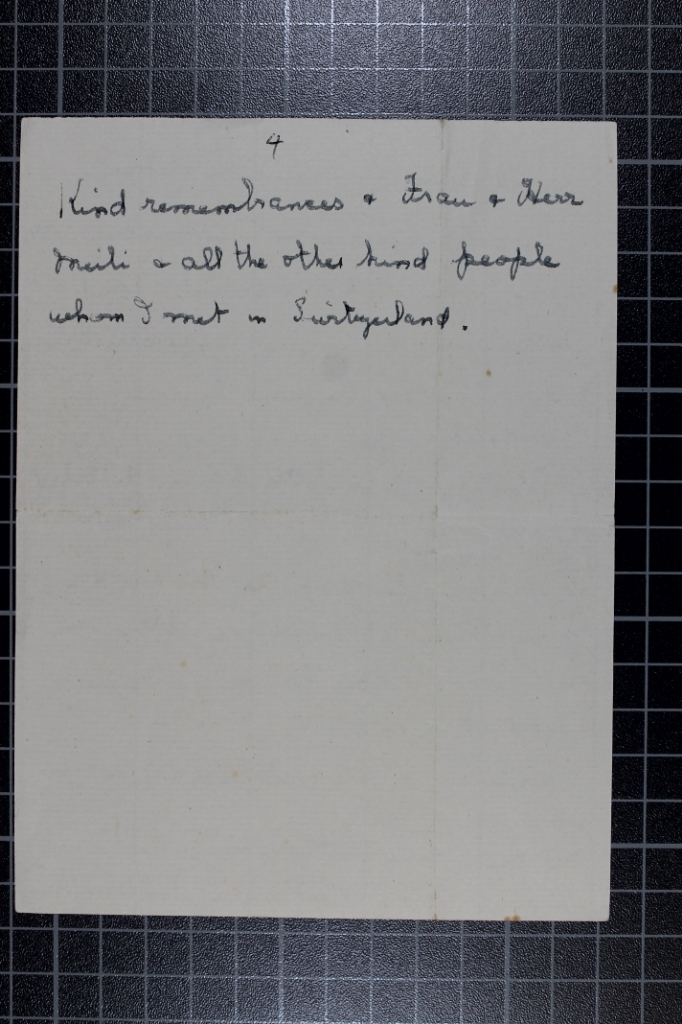 4
Kind remembrances & Frau & Herr
Meili & all the other kind people
whom I met in Switzerland.